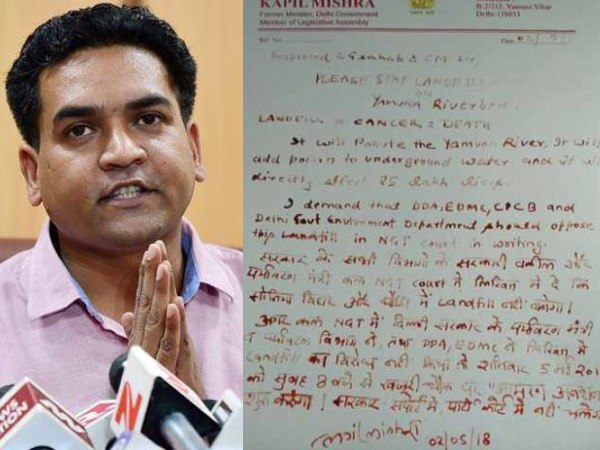 KAPIL MISHRA
Former Minister, Delhi Government
Member of Legislative Assembly
Yamuna Vihar
Delhi-110053
Ref No.
Date
PLEASE STOP LANDFILL
ON
Yamuna Riverbed
LANDFILL = CANCER = DEATH
It will Polute the Yamuna River. It will
add poison to underground water and it will
directly affect 25 lakh lives.
I demand that DDA, EDMC, CPCB and
Delhi Govt Environment Department should oppose
this Landfill in NGT court in writing.
सरकार के सभी विभागों के सरकारी वकील और
पर्यावरण मंत्री कल NGT court में लिखित में दें कि
सोनिया विहार और घोंडा में Landfill नहीं बनेगा।
अगर कल NGT में दिल्ली सरकार के पर्यावरण मंत्री
व पर्यावरण विभाग ने, तथा DDA, EDMC ने लिखित में
Landfill का विरोध नहीं किया तो शनिवार 5 मई 201
को सुबह 8 बजे में खजूरी चौक पर "आमरण अनशन
शुरू करूंगा। सरकार सपोर्ट में, पार्टी कोर्ट में नहीं चलेगा
02/05/18
NEWS
NATION
N